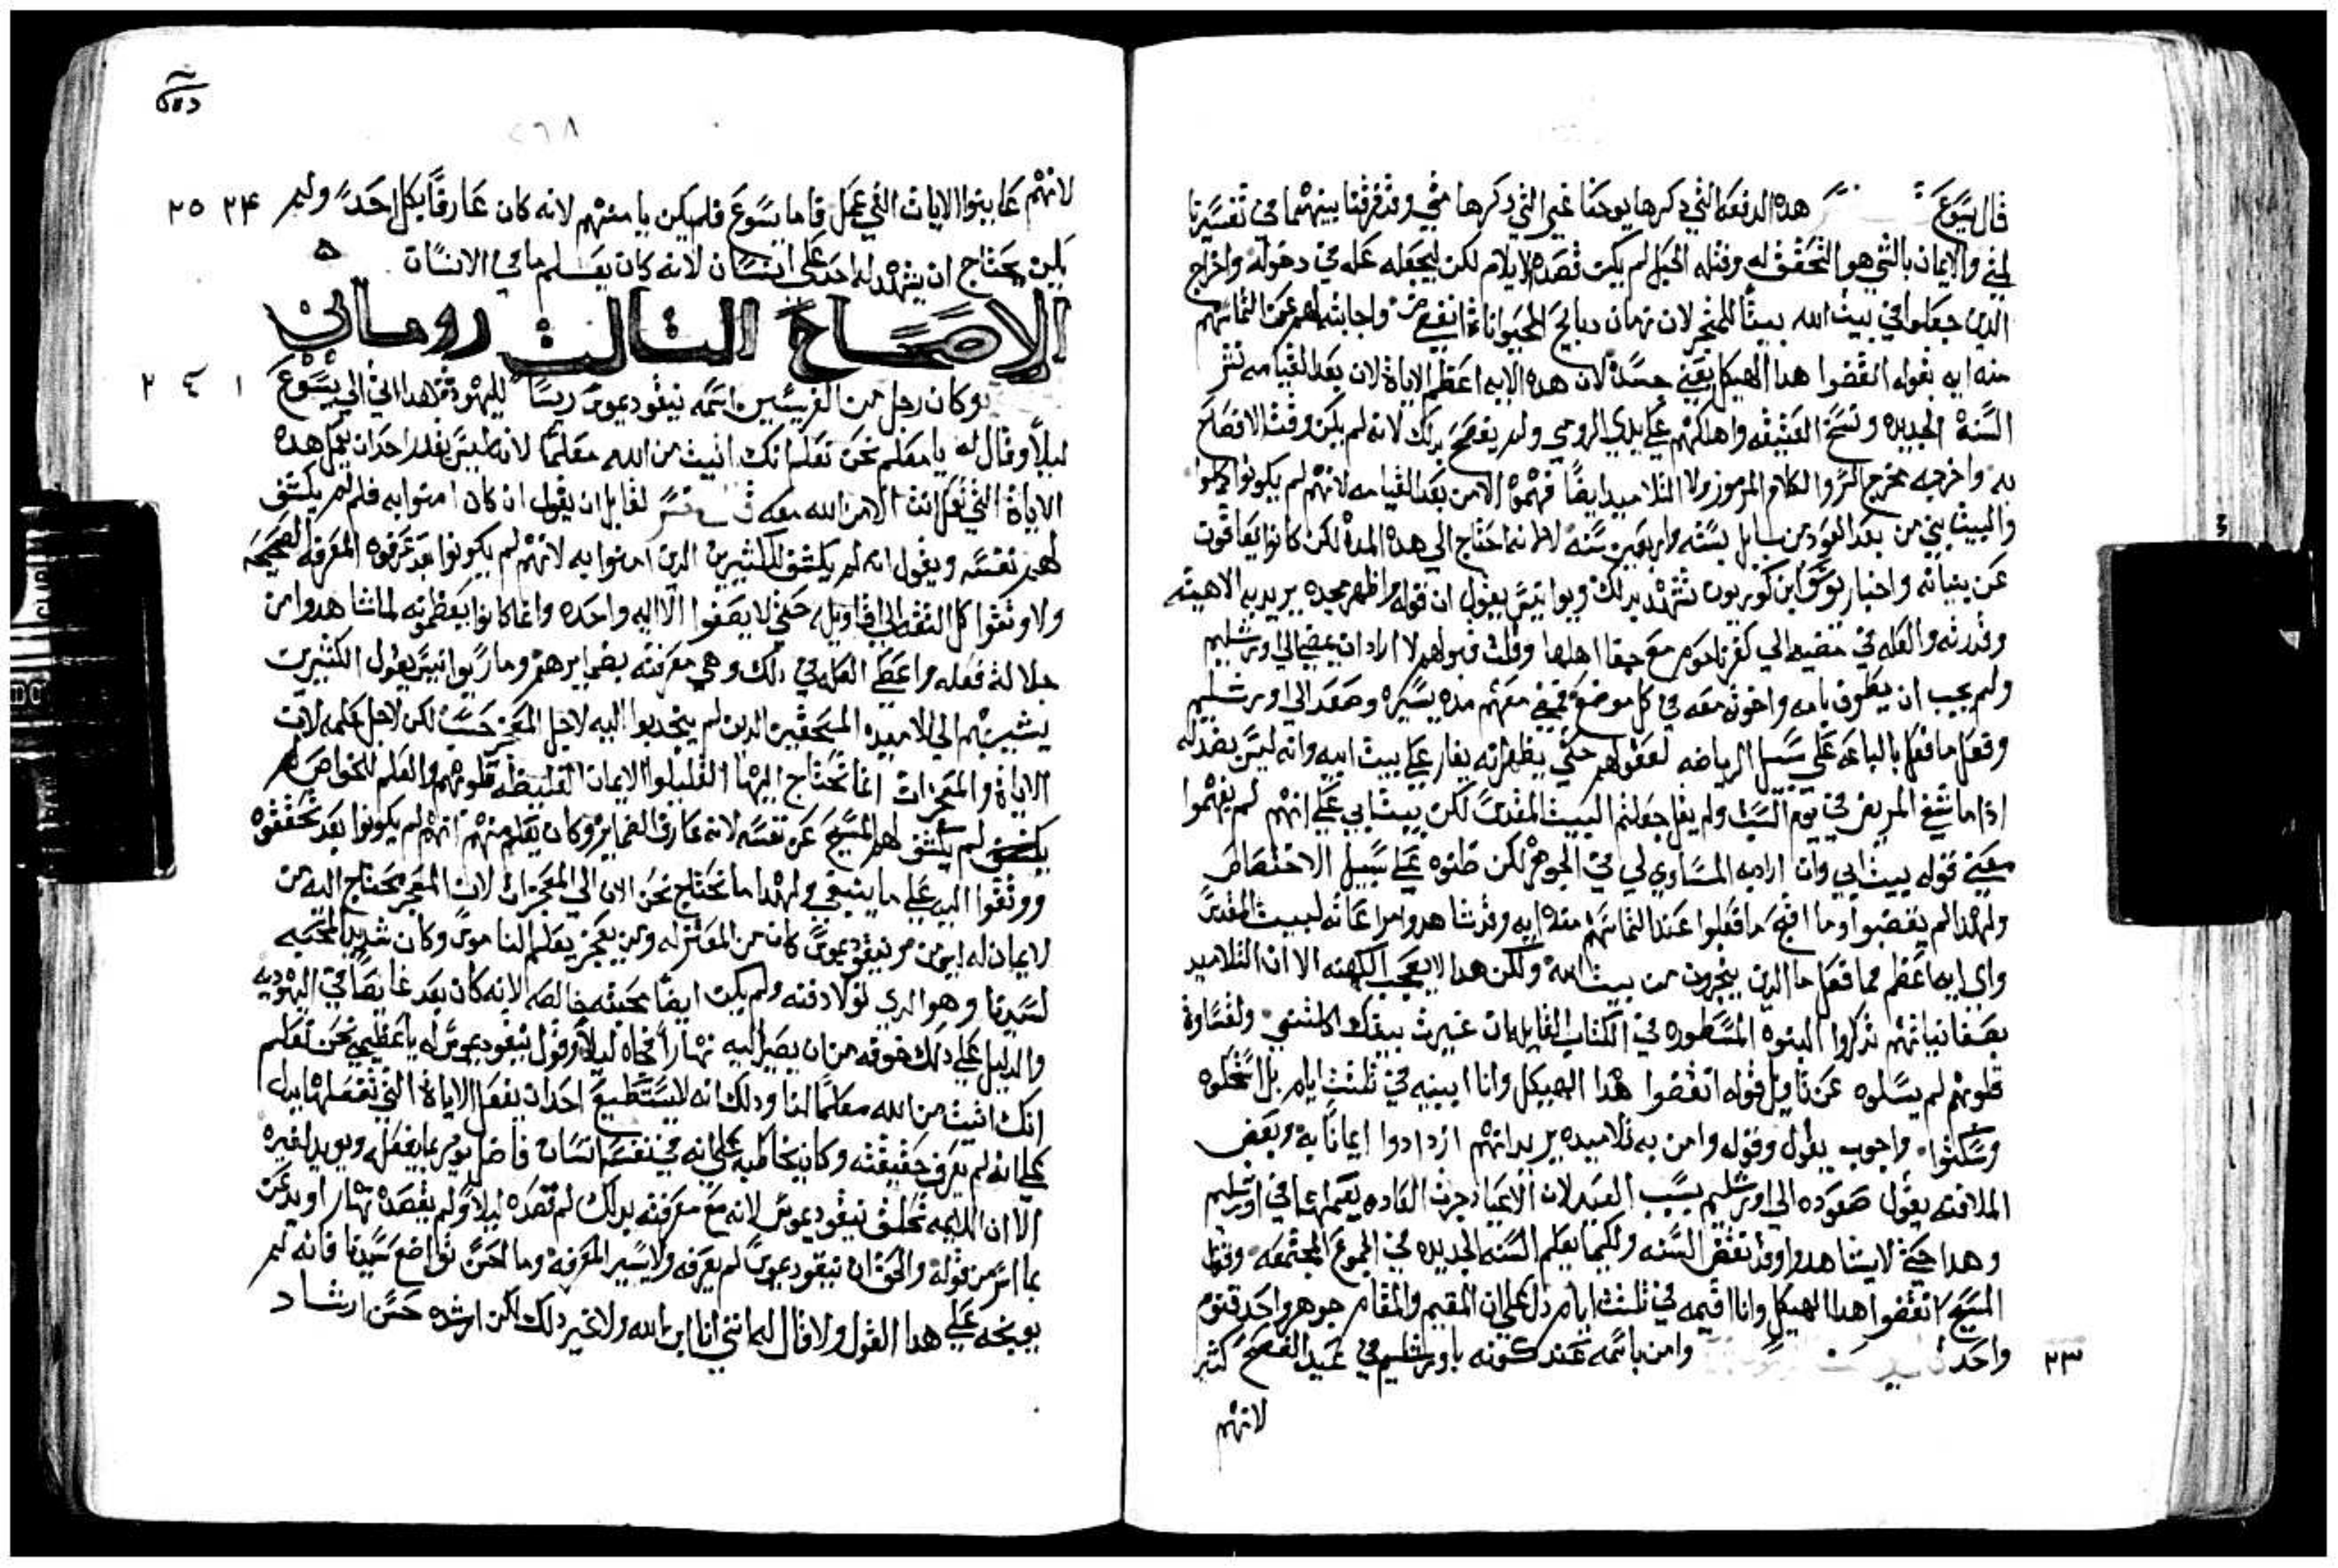 قال يسوع هده الدفعه التي دكرها يوحنا غير التي دكرها متي وقد فرقنا بينهما في تفسيرنا
لمتي والايمان بالشي هو التحقق له وفتله الحبل لم يكن قصده الايلام لكن ليجعله عله في دخوله واخراج
الدين جعلوا في بيت الله بيتًا للمتجر لان زمان دبايح الحيوانات انقضي واجابته لهم عن التماسهم
منه ايه بقوله انقضوا هدا الهيكل يعني جسده لان هده الايه اعظم الاياة لان بعد القيامه تنشر
السنة الجديده وتنسخ العتيقه واهلكتهم علي يدي الرومي ولم يفصح بدلك لانه لم يكن وقت الافصاح
به واخرجه مخرج السر والكلام المرموز ولا التلاميد ايضًا فهموه الا من بعد القيامه لانهم لم يكونوا كملوا
والبيت بني من بعد العود من بابل بسته واربعين سنه لا انما احتاج الي هده المدة لكن كانوا يعاقون
عن بنيانه واخبار يوسف ابن كوريون تشهد بدلك ويوانيس يقول ان قوله واظهر مجده يريد به الاهيته
وقدرته والعله في مضيه الي كفرناحوم مع جفا اهلها وقلت قبولهم لا اراد ان يمضي الي اورشليم
ولم يجب ان يطوف بامه واخوته معه في كل موضع فمضي معهم مده يسيره وصعد الي اورشليم
وفعل ما فعل بالباعه علي سبيل الرياضه لعقولهم حتي يظهر انه يغار علي بيت ابيه وانه ليس بضد له
ادا ما شفي المريض في يوم السبت ولم يقل جعلتم البيت المقدس لكن بيت ابي علي انهم لم يفهموا
معني قوله بيت ابي وان اراد به المساوي لي في الجوهر لكن ظنوه علي سبيل الاختصاص
ولهدا لم يغضبوا وما اقبح ما فعلوا عند التماسهم منه ايه وقد شاهدوا مراعاته لبيت المقدس
واي ايه اعظم مما فعل ما الدين يتجرون من بيت الله ولكن هدا لا يعجب الكهنه الا ان التلاميد
بصفا نياتهم تدكروا النبوه المسطوره في الكتاب القايله ان غيرت بيتك اكلتني ولقساوة
قلوبهم لم يسلوه عن تاويل قوله انقضوا هدا الهيكل وانا ابنيه في تلتت ايام بل اتكلوه
وسكتوا واجوب يقول وقوله وامن به تلاميده يريد انهم ازدادوا ايمانًا به وبعض
الملافنه يقول صعوده الي اورشليم بسبب العيد لان الاعياد جرت العاده بعملها في اورشليم
وهدا حتي لا يشاهدوا وقد نقض السنه ولكيما يعلم السنه الجديده في الجموع المجتمعه وقول
المسيح انقضوا هدا الهيكل وانا اقيمه في تلتت ايام دل علي ان المقيم والمقام جوهر واحد قنوم
واحد وامن باسمه عند كونه باورشليم في عيد الفصح كثير ٢٣
لانهم
لانهم عاينوا الايات التي عمل فاما يسوع فلم يكن يامنهم لانه كان عارفًا بكل احد ولم ٢٤ ٢٥
يكن يحتاج ان يشهد له احد علي انسان لانه كان يعلم ما في الانسان
الاصحاح التالت روماني
وكان رجل من الفريسيين اسمه نيقوديموس ريسًا لليهود هدا اتي الي يسوع ١ ٢
ليلًا وقال له يا معلم نحن نعلم انك اتيت من الله معلمًا لانه ليس يقدر احد ان يعمل هده
الاياة التي تعمل انت الا من الله معه لقايل ان يقول ان كان امنوا به فلم لم يكشف
لهم نفسه ويقول انه لم يكشف للكتيرين الدين امنوا به لانهم لم يكونوا بعد عرفوه المعرفه الصحيحه
ولا وتقوا كل التقه الي اقاويله حتي لا يصغوا الا اليه واحده وانما كانوا يعظمونه لما شاهدوا من
جلالة فعله واعطي العله في دلك وهي معرفته بضمايرهم ومار يوانيس يقول الكتيرين
يشير بهم الي تلاميده المستحقين الدين لم ينجدبوا اليه لاجل المعجز حسب لكن لاجل علمه لان
الاياة والمعجزات انما تحتاج اليها القليلوا الايمان الغليظه قلوبهم والعلم للخواص لم
يكشف لهم المسيح عن نفسه لانه عارف الضماير وكان يعلم منهم انهم لم يكونوا بعد تحققوه
ووتقوا اليه علي ما ينبغي ولهدا ما نحتاج نحن الان الي المعجزات لان المعجز يحتاج اليه من
لا ايمان له ليومن نيقوديموس كان من المعتزله وممن يعجز بعلم الناموس وكان شديد المحبه
لسيدنا وهو الدي تولا دفنه ولم يكن ايضًا محبته خالصه لانه كان بعد غايصًا في اليهوديه
والدليل علي دلك خوفه من ان يصير اليه نهارًا فجاه ليلًا وقول نيقوديموس له يا عظيمي نحن نعلم
انك اتيت من الله معلمًا لنا ودلك انه لا يستطيع احد ان يفعل الاياة التي تفعلها يدل
علي انه لم يعرف حقيقته وكان يخاطبه علي انه في نفسه انسان فاضل
الا ان اللايمه تلحق نيقوديموس لانه مع معرفته بدلك لم قصده ليلًا ولم يقصده نهارًا
بما اسر من قوله والحق ان نيقوديموس لم يعرفه ولا يسير المعرفه وما احسن تواضع سيدنا فانه لم
يوبخه علي هدا القول ولا قال له انني انا ابن الله ولا غير دلك لكن ارشده حسن ارشاد